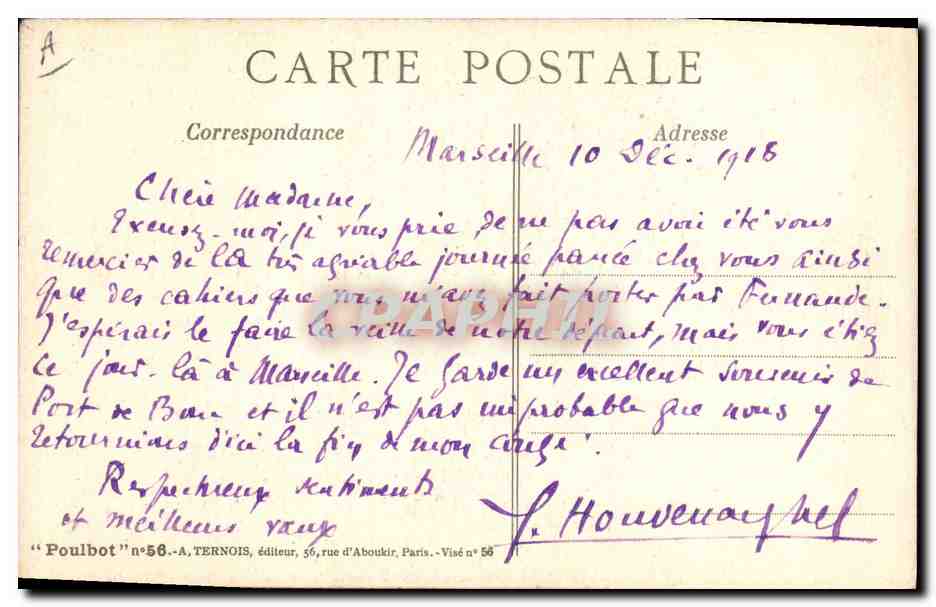 A
CARTE POSTALE
Correspondance
Adresse
Marseille 10 Déc. 1918
Chère Madame,
Excusez-moi, je vous prie, de ne pas avoir été vous
remercier de la très agréable journée passée chez vous ainsi
que des cahiers que vous m'avez fait porter par Fernande.
J'espérais le faire la veille de notre départ, mais vous étiez
ce jour-là à Marseille. Je garde un excellent souvenir de
Port de Bouc et il n'est pas improbable que nous y
retournions d'ici la fin de mon congé.
Respectueux sentiments
et meilleurs vœux
"Poulbot" n° 56.-A, TERNOIS, éditeur, 56, rue d'Aboukir, Paris.-Visé n° 56
CPAPHIL